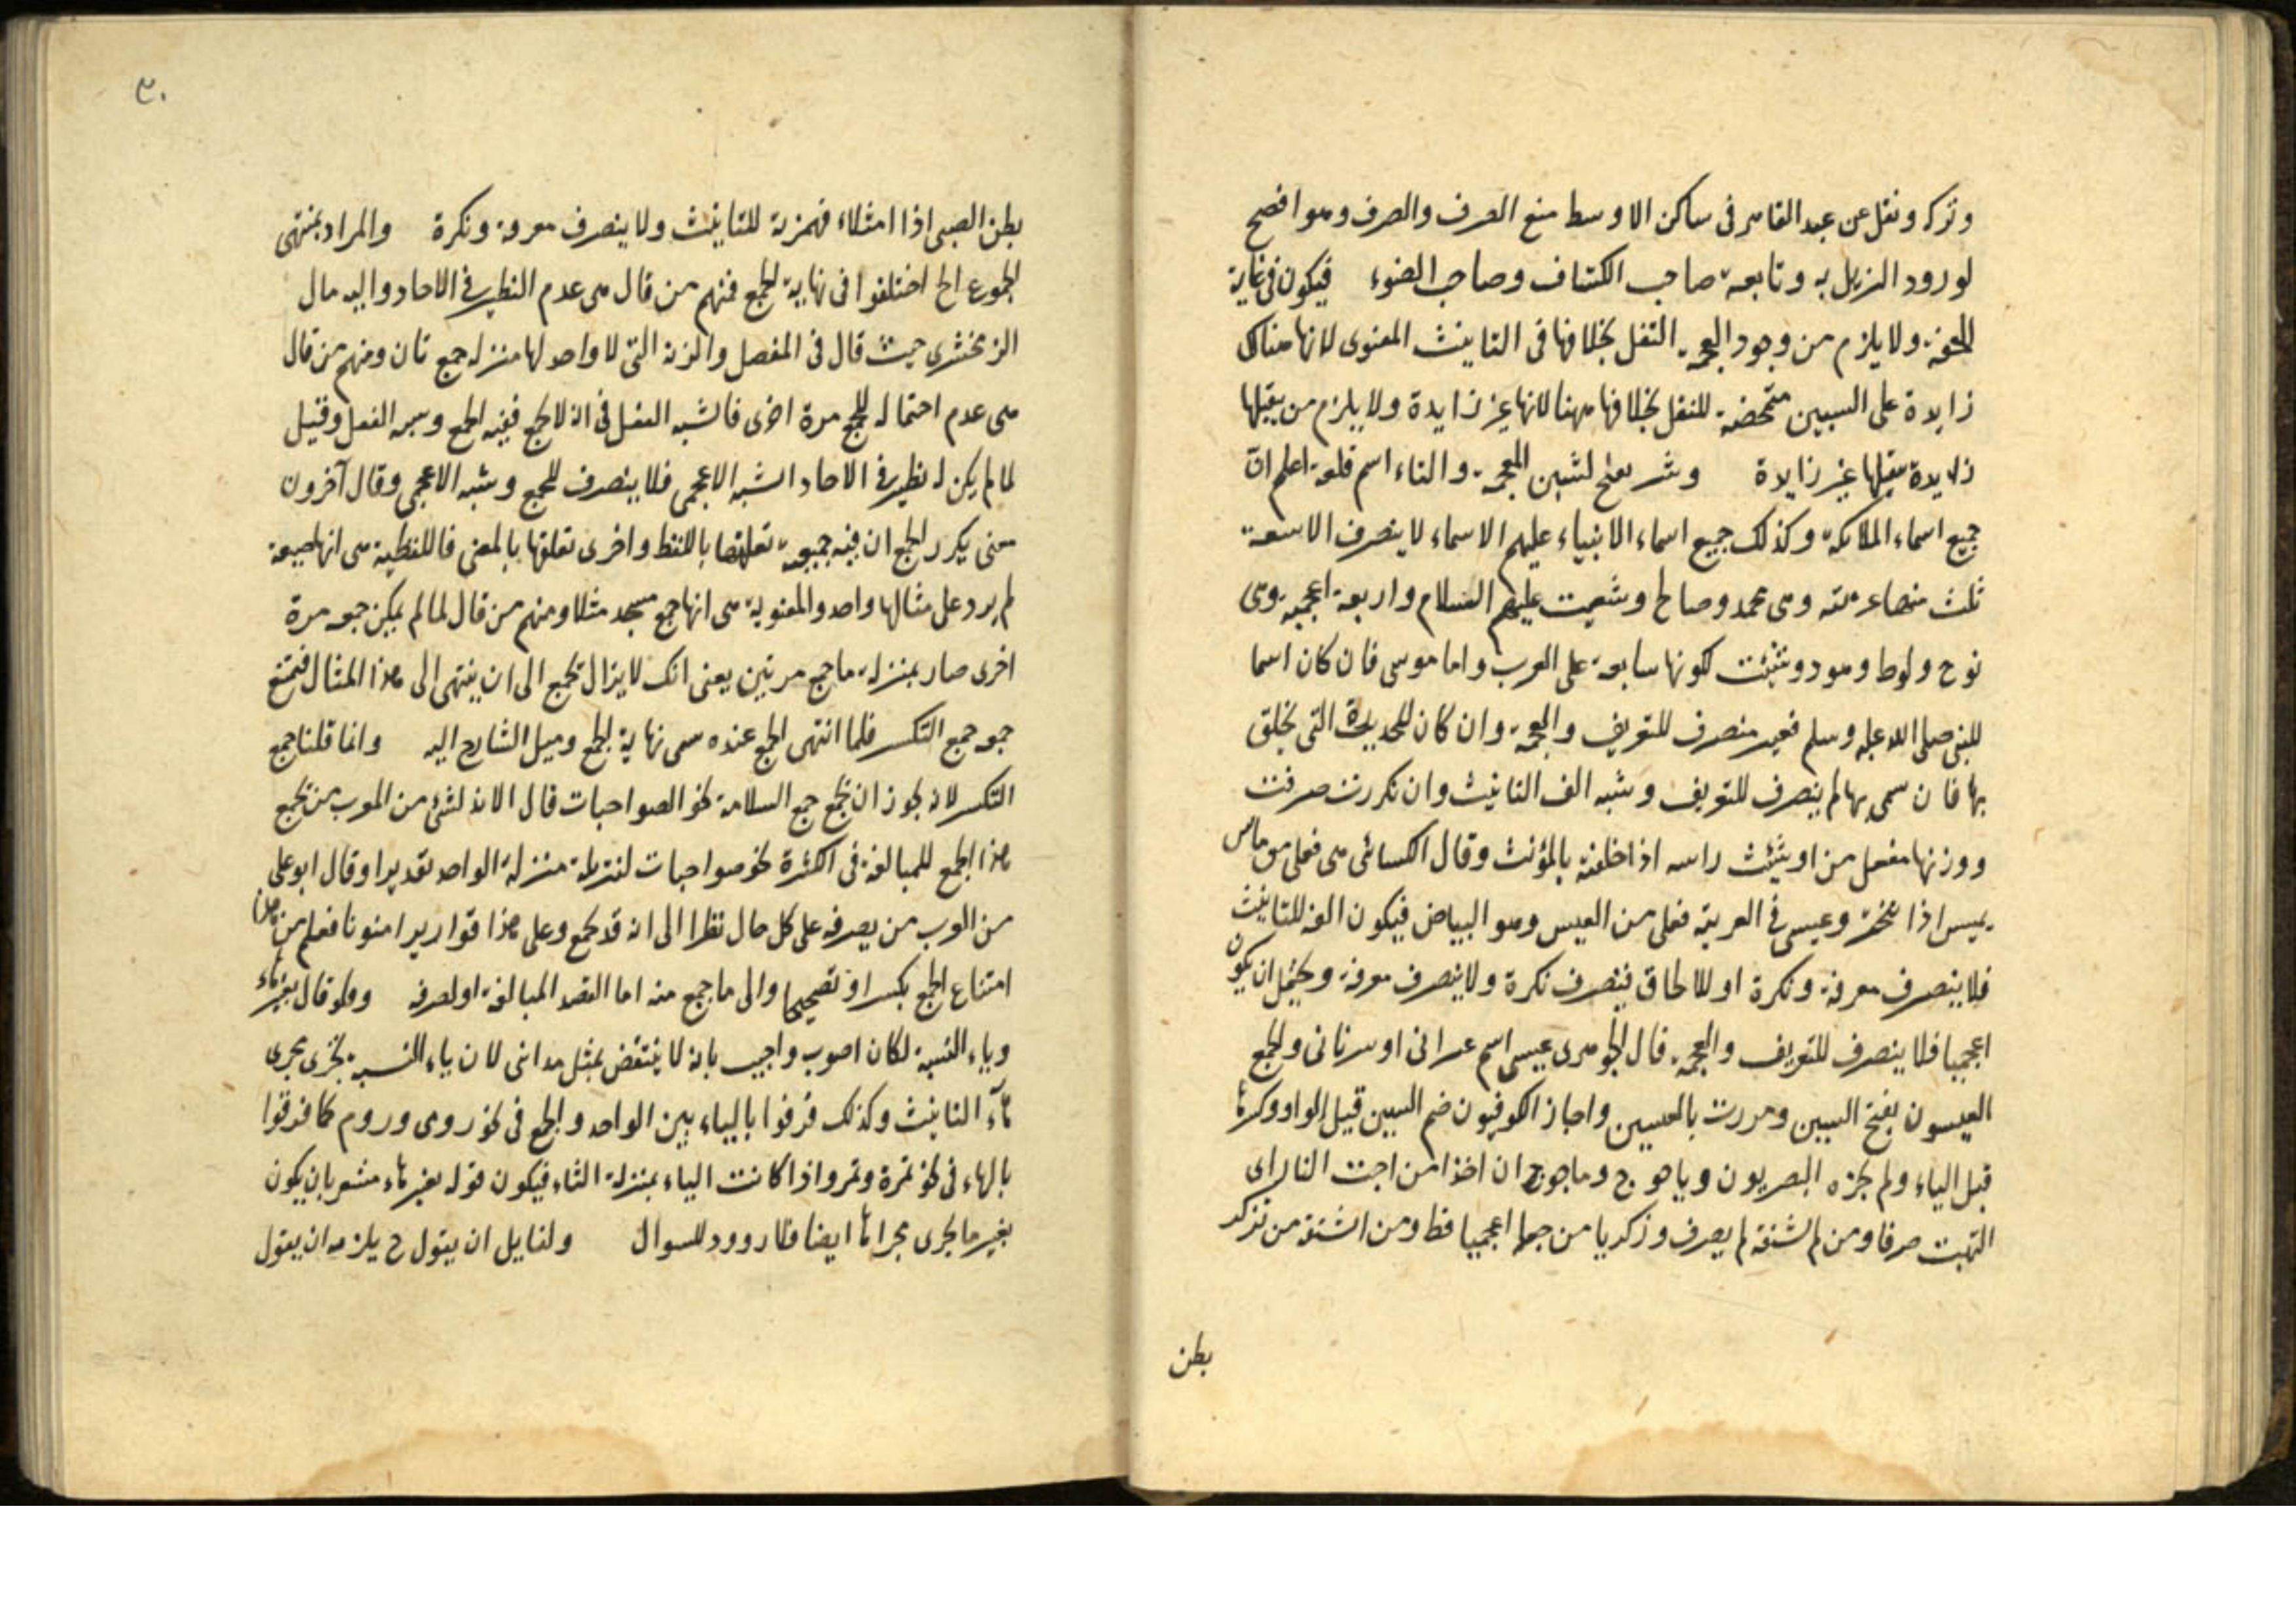 وتركه ونقل عن عبد القاهر فى ساكن الاوسط منع الصرف والصرف وهو افصح
لورود التنزيل به وتابعه صاحب الكشاف وصاحب الضوء فيكون فى غاية
الخفة ولا يلزم من وجود العجمة الثقل بخلافها فى التانيث المعنوى لانها هناك
زايدة على السببين متمحضة للثقل بخلافها ههنا لانها غير زايدة ولا يلزم من ثقلها
زايدة ثقلها غير زايدة وشتر بفتح الشين المعجمة والتاء اسم قلعة اعلم ان
جميع اسماء الملائكة وكذلك جميع اسماء الانبياء عليهم الاسماء لا ينصرف الا سبعة
ثلث منها عربية وهى محمد وصالح وشعيب عليهم السلام واربعة اعجمية وهى
نوح ولوط وهود وشيث لكونها سابعة على العرب واما موسى فان كان اسما
للنبى صلى الله عليه وسلم فغير منصرف للتعريف والعجمة وان كان للحديدة التى يحلق
بها فان سمى بها لم ينصرف للتعريف وشبه الف التانيث وان نكرت صرفت
ووزنها مفعل من اوسيت راسه اذا حلقته بالمؤنث وقال الكسائى هى فعلى من ماس
يميس اذا تبختر وعيسى فى العربية فعلى من العيس وهو البياض فيكون الفه للتانيث
فلا ينصرف معرفة ونكرة او للالحاق فينصرف نكرة ولا ينصرف معرفة ويحتمل ان يكون
اعجميا فلا ينصرف للتعريف والعجمة قال الجوهرى عيسى اسم عبرانى او سريانى والجمع
العيسون بفتح السين ومررت بالعيسين واجاز الكوفيون ضم السين قبل الواو وكسرها
قبل الياء ولم يجزه البصريون وياجوج وماجوج ان اخذا من اجت النار اى
التهبت صرفا ومن لم يشتقه لم يصرف وزكريا من جعله اعجميا فظ ومن اشتقه من تزكر
بطن
٣٠
بطن الصبى اذا امتلاء فهمزته للتانيث ولا ينصرف معرفة ونكرة والمراد بمنتهى
الجموع الخ اختلفوا فى نهاية الجمع فمنهم من قال هى عدم النظير فى الاحاد واليه مال
الزمخشرى حيث قال فى المفصل والزنة التى لا واحد لها منزلة جمع ثان ومنهم من قال
هى عدم احتماله للجمع مرة اخرى فاشبه الفعل فى انه لا يجمع ففيه الجمع وشبه الفعل وقيل
لما لم يكن له نظير فى الاحاد اشبه الاعجمى فلا ينصرف للجمع وشبه الاعجمى وقال آخرون
معنى تكرر الجمع ان فيه جمعية تعلقها باللفظ واخرى تعلقها بالمعنى فاللفظية هى انها صيغة
لم يرد على مثالها واحد والمعنوية هى انها جمع مسجد مثلا ومنهم من قال لما لم يمكن جمعه مرة
اخرى صار بمنزلة ما جمع مرتين يعنى انك لا يزال تجمع الى ان ينتهى الى هذا المثال فتمنع
جمعه جمع التكسر فلما انتهى الجمع عنده سمى نهاية الجمع وميل الشارح اليه وانما قلنا جمع
التكسر لانه يجوز ان يجمع جمع السلامة نحو الصواحبات قال الا انه لشئ من العرب من يجمع
هذا الجمع للمبالغة فى الكثرة نحو صواحبات لتنزيله منزلة الواحد تقديرا وقال ابو على
من العرب من يصرفه على كل حال نظرا الى انه قد يجمع وعلى هذا قواريرا منونا فعلم من هذا
امتناع الجمع بكسر او تصحيح والى ما جمع منه اما لقصد المبالغة او لصرفه ولو قال بغير هاء
وياء النسبة لكان اصوب واجيب بانه لا ينتقض بمثل مدائنى لان ياء النسبة يجرى مجرى
تاء التانيث وكذلك فرقوا بالياء بين الواحد والجمع فى نحو رومى وروم كما فرقوا
بالهاء فى نحو تمرة وتمر واذا كانت الياء بمنزلة التاء فيكون قوله بغير هاء مشعر بان يكون
بغير ما يجرى مجراها ايضا فلا ورود للسوال ولقايل ان يقول ح يلزمه ان يقول